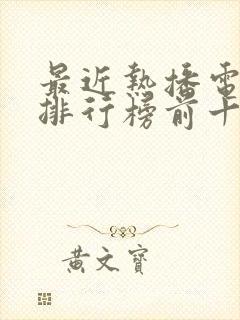 最近熱播電
排行榜前十
黃文寶